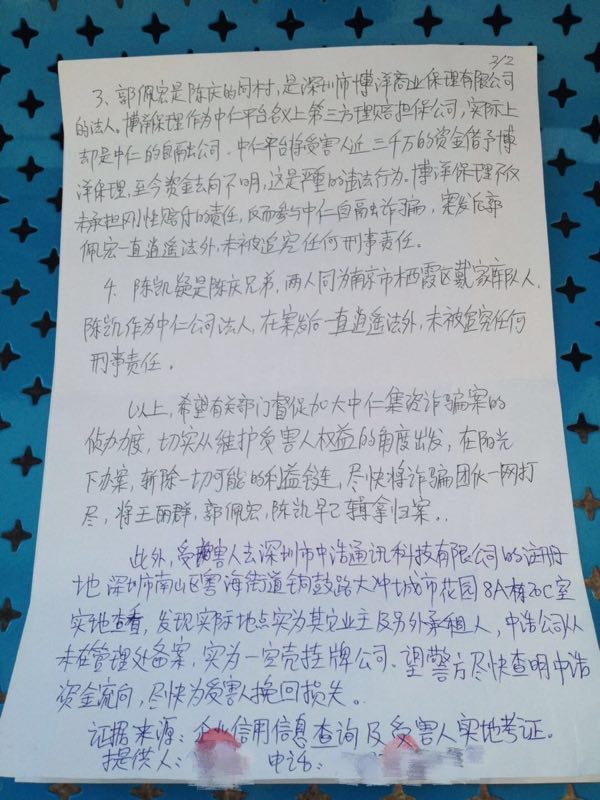 2/2
3、郭佩宏是陈庆的同村,是深圳市博洋商业保理有限公司
的法人。博洋保理作为中仁平台名义上第三方理赔担保公司,实际上
却是中仁的自融公司。中仁平台将受害人近三千万的资金借予博
洋保理,至今资金去向不明,这是严重的违法行为。博洋保理不仅
未承担刚性赔付的责任,反而参与中仁自融诈骗,案发后郭
佩宏一直逍遥法外,未被追究任何刑事责任。
4、陈凯疑是陈庆兄弟,两人同为南京市栖霞区戴家库队人,
陈凯作为中仁公司法人,在案发后一直逍遥法外,未被追究任何
刑事责任。
以上,希望有关部门督促加大中仁集资诈骗案的
侦办力度,切实从维护受害人权益的角度出发,在阳光
下办案,斩除一切可能的利益链,尽快将诈骗团伙一网打
尽,将王丽群,郭佩宏,陈凯早已缉拿归案..
此外,受害人去深圳市中浩通讯科技有限公司的注册
地深圳市南山区粤海街道铜鼓路大冲城市花园8A栋20C室
实地查看,发现实际地点实为其它业主及另外承租人,中浩公司从
未在管理处备案,实为一空壳挂牌公司。望警方尽快查明中浩
资金流向,尽快为受害人挽回损失。
证据来源:企业信用信息查询及受害人实地考证。
提供人: 电话: